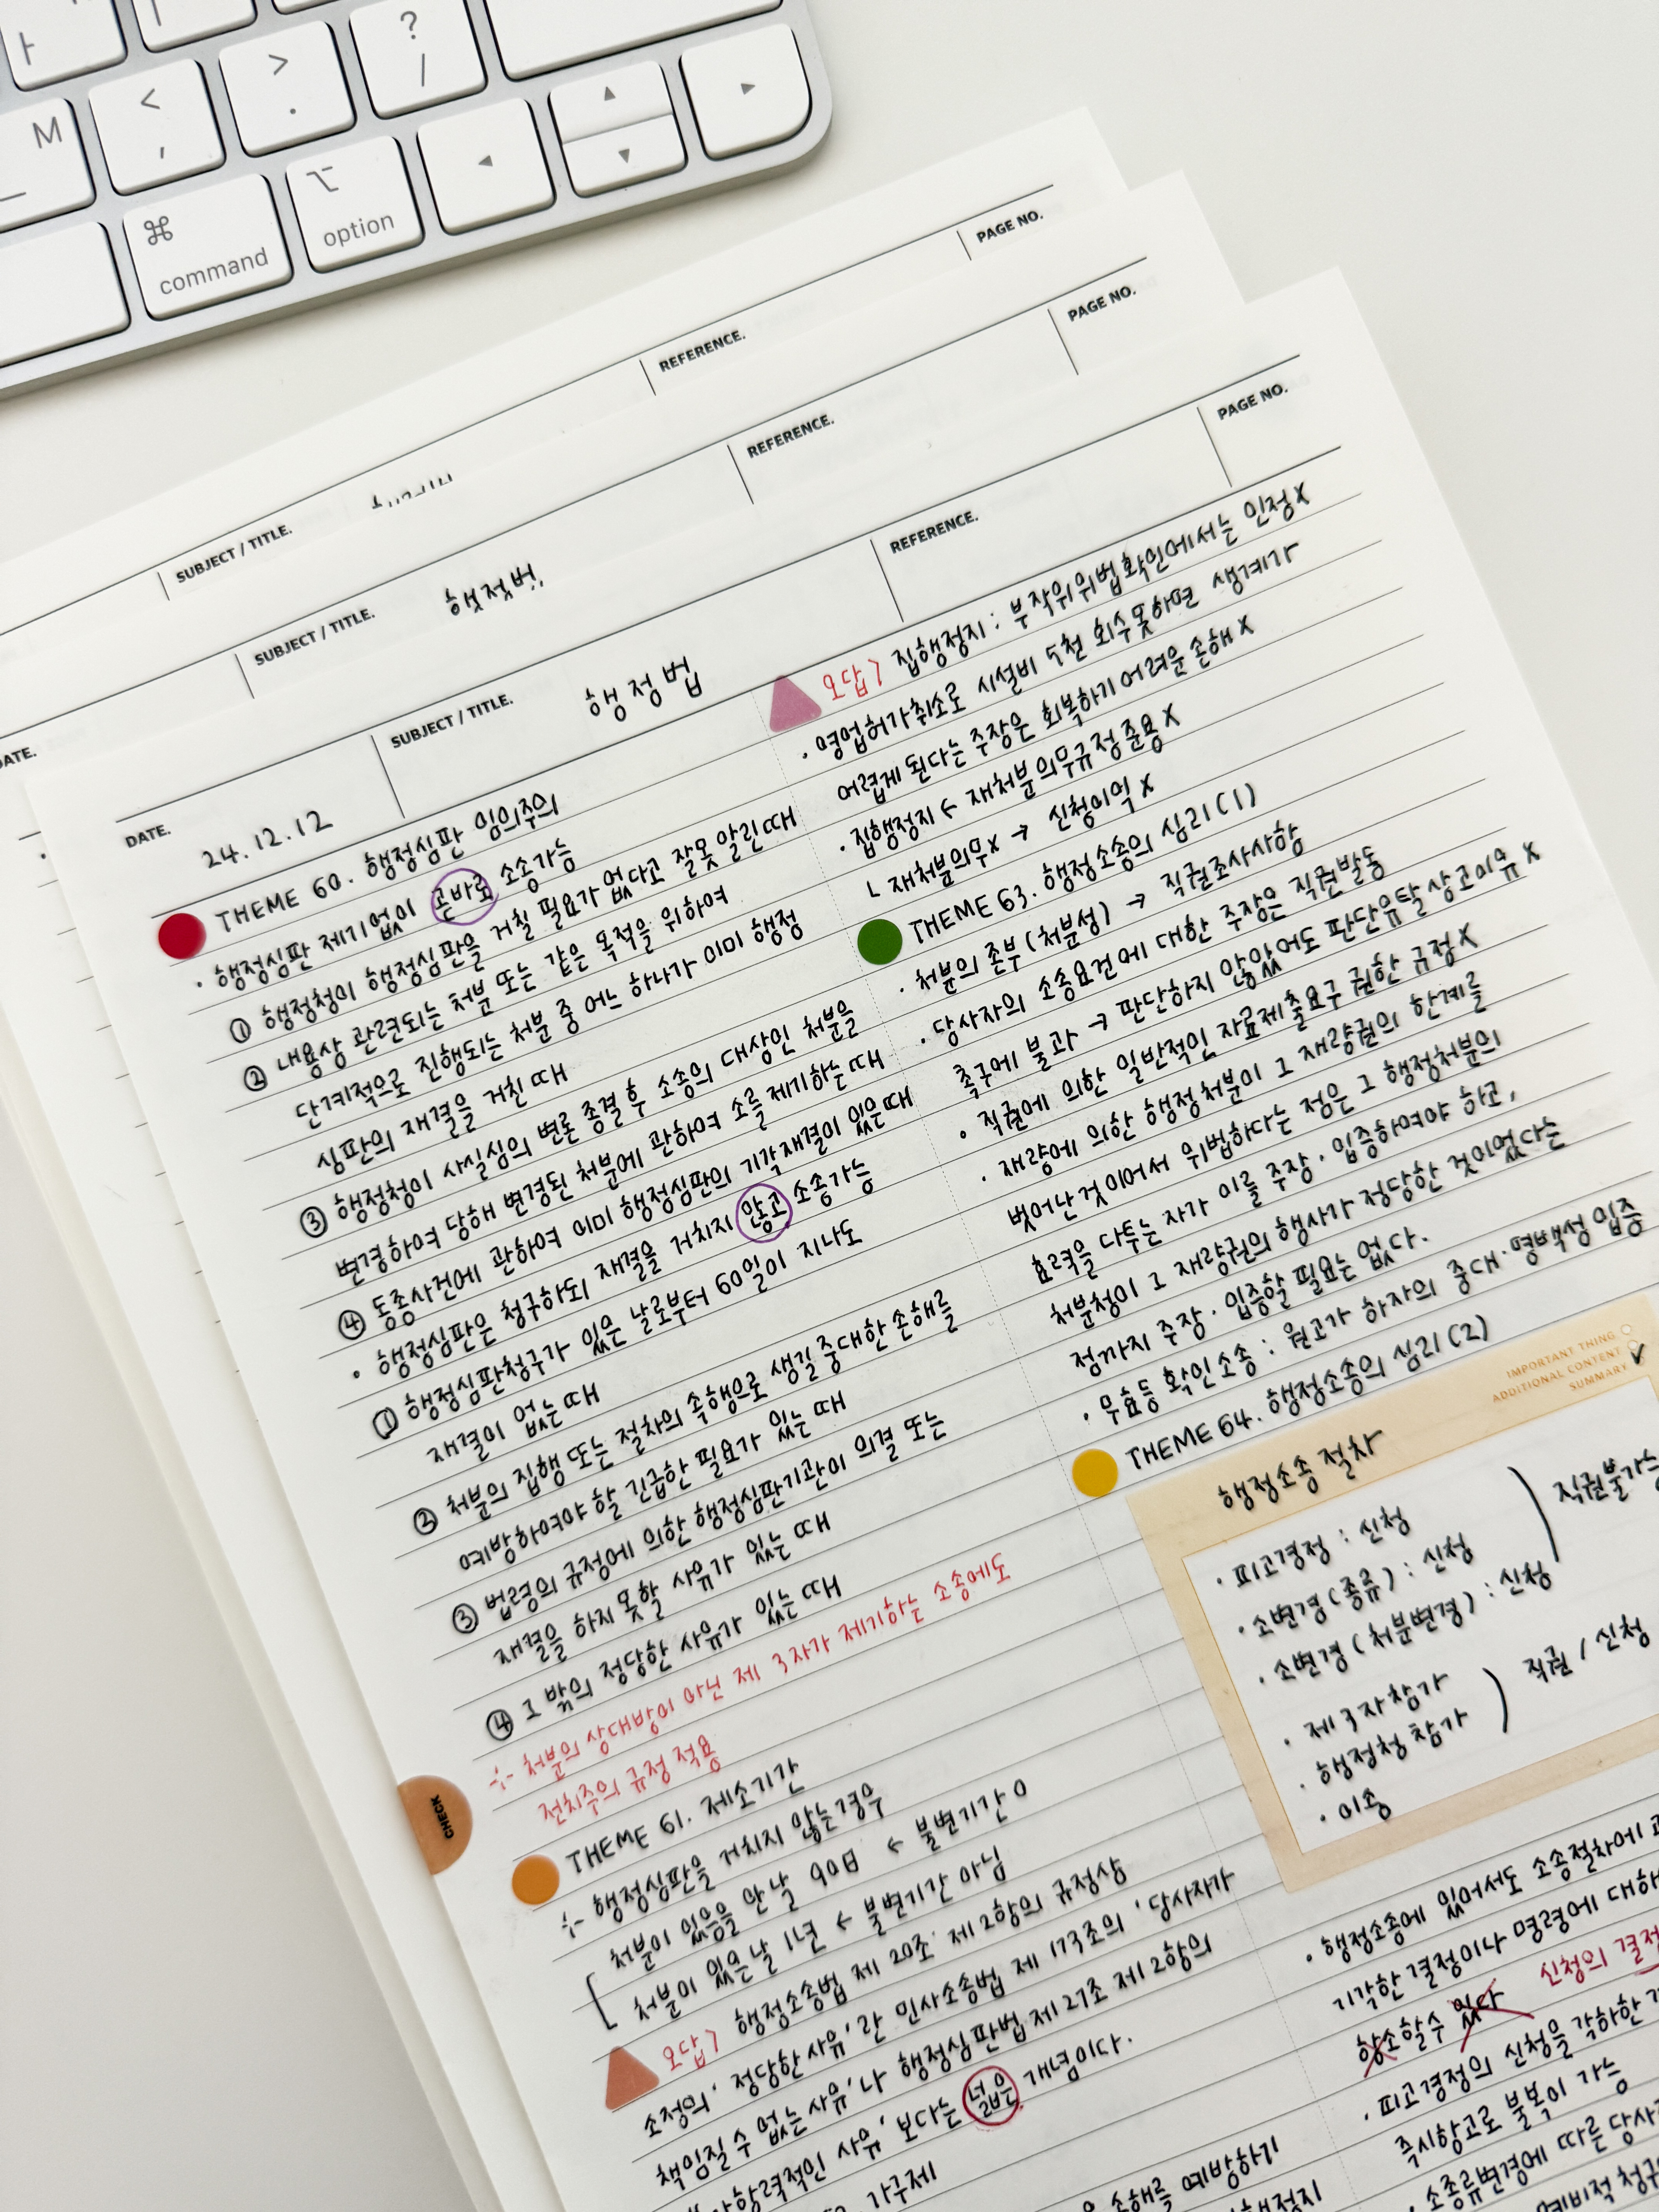 M
<
,
>
.
?
/
⌘
command
⌥
option
◄
▲
▼
►
PAGE NO.
REFERENCE.
SUBJECT / TITLE.
PAGE NO.
REFERENCE.
SUBJECT / TITLE.
행정법
DATE.
PAGE NO.
REFERENCE.
SUBJECT / TITLE.
행정법
DATE.
24.12.12
THEME 60. 행정심판 임의주의
· 행정심판 제기없이 곧바로 소송가능
① 행정청이 행정심판을 거칠 필요가 없다고 잘못 알린 때
② 내용상 관련되는 처분 또는 같은 목적을 위하여
단계적으로 진행되는 처분 중 어느 하나가 이미 행정
심판의 재결을 거친 때
③ 행정청이 사실심의 변론 종결 후 소송의 대상인 처분을
변경하여 당해 변경된 처분에 관하여 소를 제기하는 때
④ 동종사건에 관하여 이미 행정심판의 기각재결이 있은 때
· 행정심판은 청구하되 재결을 거치지 않고 소송가능
① 행정심판청구가 있은 날로부터 60일이 지나도
재결이 없는 때
② 처분의 집행 또는 절차의 속행으로 생길 중대한 손해를
예방하여야 할 긴급한 필요가 있는 때
③ 법령의 규정에 의한 행정심판기관이 의결 또는
재결을 하지 못할 사유가 있는 때
④ 그 밖의 정당한 사유가 있는 때
÷ 처분의 상대방이 아닌 제 3자가 제기하는 소송에도
전치주의 규정 적용
CHECK
THEME 61. 제소기간
÷ 행정심판을 거치지 않는 경우
처분이 있음을 안 날 90日 ← 불변기간 O
처분이 있은 날 1년 ← 불변기간 아님
오답> 행정소송법 제 20조 제 2항의 규정상
소정의 '정당한 사유'란 민사소송법 제 173조의 '당사자가
책임질 수 없는 사유'나 행정심판법 제 27조 제 2항의
불가항력적인 사유'보다는 넓은 개념이다.
가구제
오답> 집행정지 : 부작위위법확인에서는 인정 X
· 영업허가취소로 시설비 5천 회수못하면 생계가
어렵게 된다는 주장은 회복하기 어려운 손해 X
· 집행정지 ← 재처분의무규정 준용 X
ㄴ 재처분의무X → 신청이익 X
THEME 63. 행정소송의 심리 (1)
· 처분의 존부 (처분성) → 직권조사사항
· 당사자의 소송요건에 대한 주장은 직권발동
촉구에 불과 → 판단하지 않았어도 판단유탈 상고이유 X
· 직권에 의한 일반적인 자료제출요구 권한 규정 X
· 재량에 의한 행정처분이 그 재량권의 한계를
벗어난 것이어서 위법하다는 점은 그 행정처분의
효력을 다투는 자가 이를 주장 · 입증하여야 하고,
처분청이 그 재량권의 행사가 정당한 것이었다는
점까지 주장 · 입증할 필요는 없다.
· 무효등 확인소송 : 원고가 하자의 중대 · 명백성 입증
THEME 64. 행정소송의 심리 (2)
IMPORTANT THING
ADDITIONAL CONTENT
SUMMARY ✓
행정소송 절차
· 피고경정 : 신청
· 소변경 (종류) : 신청
· 소변경 (처분변경) : 신청
직권불가능
· 제 3자 참가
· 행정청 참가
· 이송
직권 / 신청
· 행정소송에 있어서도 소송절차에
기각한 결정이나 명령에 대해
항소할 수 있다 신청의 결정
· 피고경정의 신청을 각하한
즉시항고로 불복이 가능
· 소종류변경에 따른 당사
예비적 청구
손해를 예방하기
집행정지